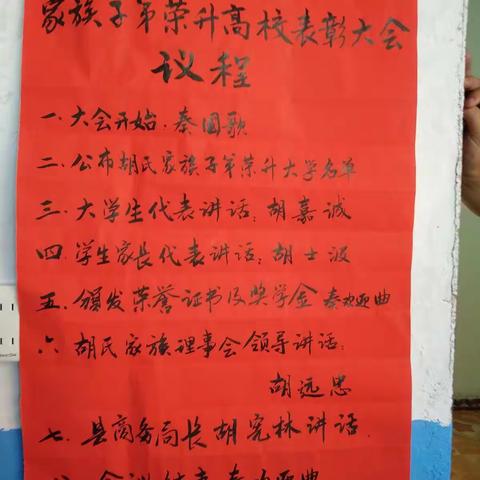 家族子弟荣升高校表彰大会
议程
一、大会开始：奏国歌
二、公布胡氏家族子弟荣升大学名单
三、大学生代表讲话：胡嘉诚
四、学生家长代表讲话：胡士汲
五、颁发荣誉证书及奖学金 奏欢迎曲
六、胡氏家族理事会领导讲话：
胡远忠
七、县商务局长胡宪林讲话